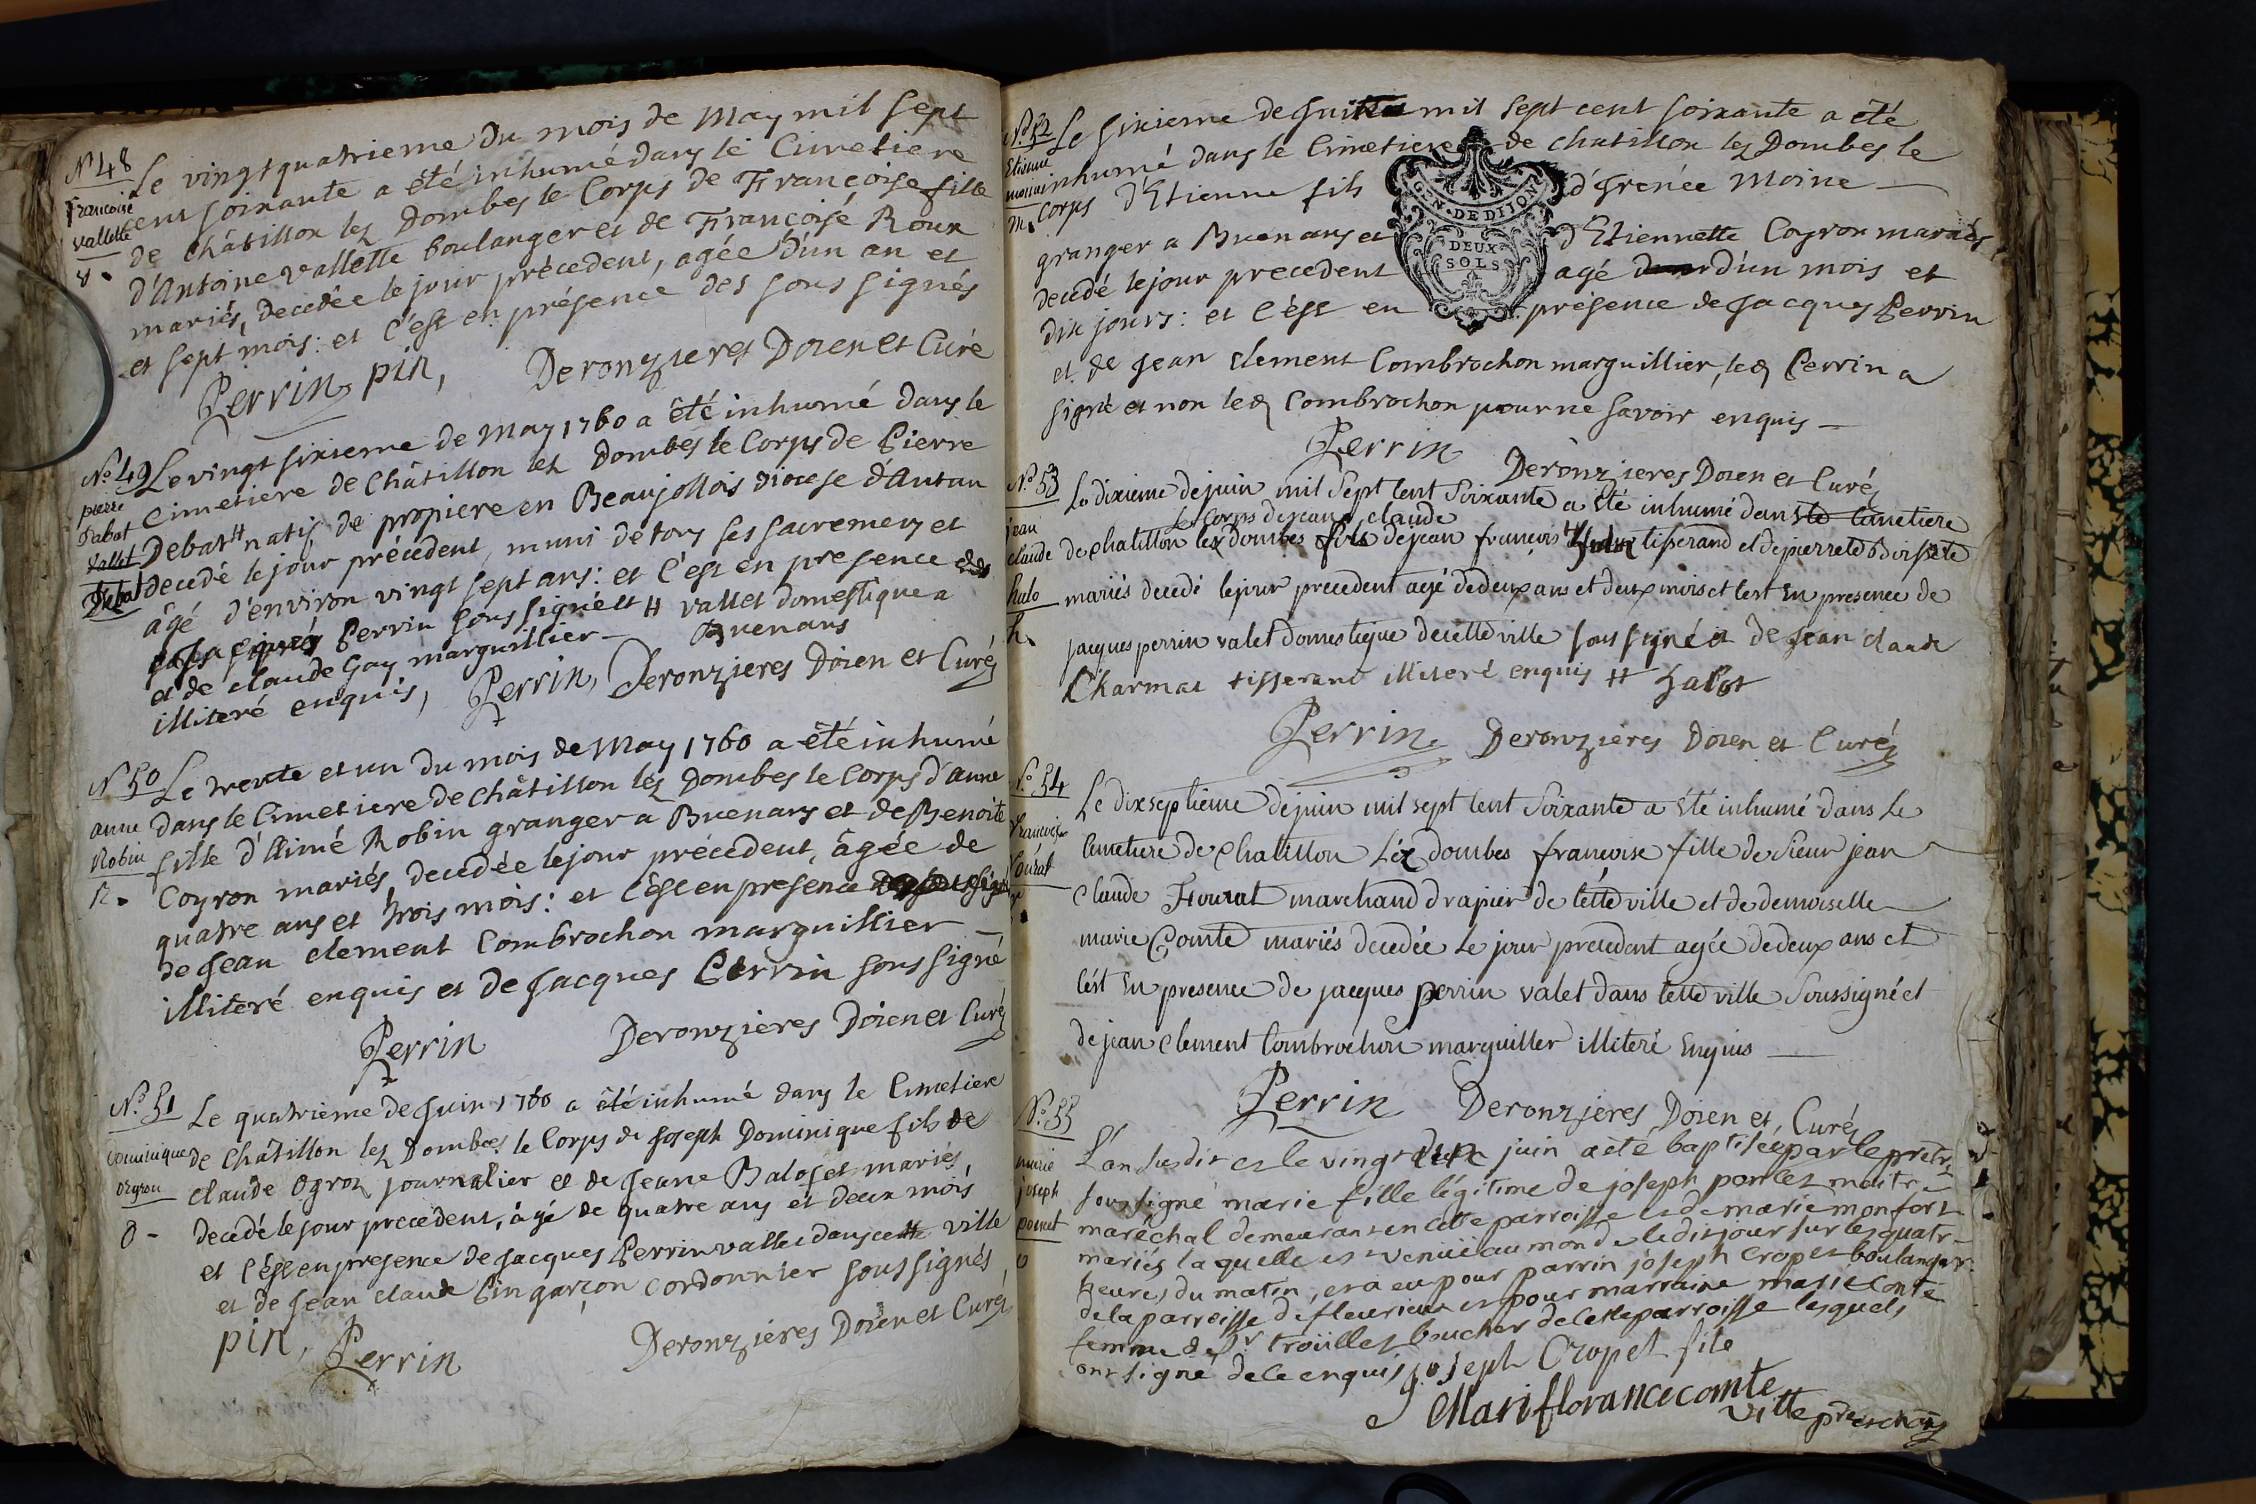 N° 48
Françoise
vallette
v.
Le vingt quatrieme du mois de May mil sept
cent soixante a été inhumé dans le Cimetiere
de Châtillon lez Dombes le Corps de Françoise fille
d'Antoine vallette boulanger et de Françoise Roux
mariés, decedée le jour précedent, agée d'un an et
et sept mois: et c'est en présence des sous signés
Perrin, pin, Deronzieres Doien et Curé
N° 49
pierre
Dabat
vallet
Debat
Le vingt sixieme de May 1760 a été inhumé dans le
Cimetiere de Châtillon lez Dombes le Corps de Pierre
Debat # natif de propiere en Beaujollois diocese d'Autun
decedé le jour précedent, muni de tous ses sacremens et
âgé d'environ vingt sept ans: et c'est en presence
Perrin sous signé et # vallet domestique a
Buenans
et de claude Gay marguillier
illiteré enquis, Perrin, Deronzieres Doien et Curé
N° 50
anne
Robin
R.
Le trente et un du mois de May 1760 a été inhumé
dans le Cimetiere de Châtillon lez Dombes le Corps d'anne
fille d'Aimé Robin granger a Buenans et de Benoite
Coyron mariés, decedée le jour précedent, âgée de
quatre ans et trois mois: et c'est en presence
de Jean clement Combrochon marguillier
illiteré enquis et de Jacques Perrin sous signé
Perrin Deronzieres Doien et Curé
N° 51
Dominique
ogron
O -
Le quatrieme de Juin 1760 a été inhumé dans le Cimetiere
de Châtillon lez Dombes le Corps de Joseph Dominique fils de
claude Ogron journalier et de Jeanne Baloset mariés,
decedé le jour precedent, âgé de quatre ans et deux mois,
et c'est en presence de Jacques Perrin vallet dans cette ville
et de Jean claude Pin garçon cordonnier sous signés
pin, Perrin Deronzieres Doien et Curé
N° 52
Etienne
moine
m.
Le sixieme de Juin mil sept cent soixante a été
inhumé dans le Cimetiere de chatillon lez Dombes le
Corps d'Etienne fils d'Irenée Moine
granger a Buenans et d'Etiennette Coyron mariés
decedé le jour precedent agé d'un mois et
dix jours: et c'est en présence de Jacques Perrin
et de Jean clement Combrochon marguillier, led Perrin a
signé et non led Combrochon pour ne savoir enquis
GEN. DE DIJON
DEUX
SOLS
Perrin Deronzieres Doien et Curé
N° 53
jean
claude
halo
h.
Le dixieme de juin mil sept cent soixante a été inhumé dans le cimetiere
le corps de jean claude
de chatillon lez dombes fils de jean françois # tisserand et de pierrette
mariés decedé le jour precedent agé de deux ans et deux mois et c'est en presence de
jacques perrin valet domestique de cette ville sous signé et de Jean claude
Charmat tisserand illiteré enquis #
Perrin Deronzieres Doien et Curé
N° 54
françoise
Le dix septieme de juin mil sept cent soixante a été inhumé dans le
cimetiere de chatillon lez dombes françoise fille de sieur jean
claude Fourat marchand drapier de cette ville et de demoiselle
marie Comte mariés decedée le jour precedent agée de deux ans et
c'est en presence de jacques perrin valet dans cette ville soussigné et
de jean clement Combrochon marguiller illiteré enquis
Perrin Deronzieres Doien et Curé
N° 55
marie
joseph
L'an susdit et le vingt juin a été baptisée par le pretre
soussigné marie fille légitime de joseph poncet maitre
maréchal demeurant en cette parroisse et de marie monfort
mariés laquelle est venüe au monde ledit jour sur les quatre
heures du matin, et a eu pour parrin joseph Cropet boulanger
de la parroisse de fleurieux et pour marraine marie Conte
femme de Sr troüillet boucher de cette parroisse lesquels
ont signé de ce enquis Joseph Cropet
Mari florance comte